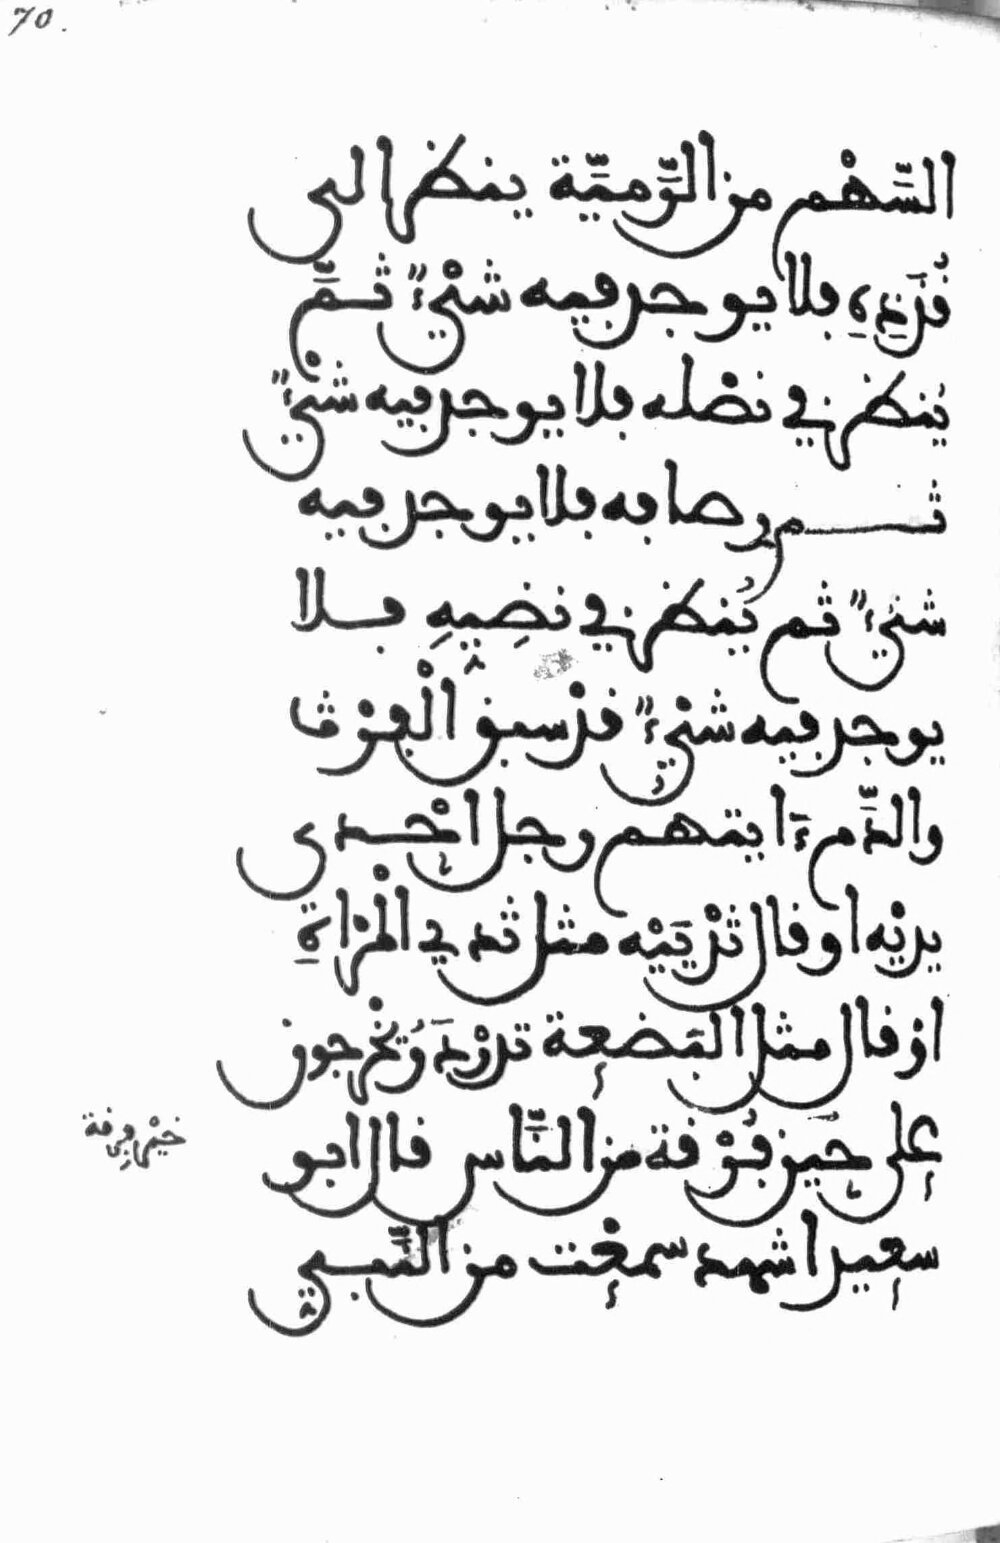 70.
السَّهْم من الرَّمِيَّة ينظر الى
قُذَذِهِ فلا يوجد فيه شيْءٌ ثمَّ
يُنظر في نصْله فلا يوجد فيه شيْءٌ
ثم رصافه فلا يوجد فيه
شيءٌ ثم يُنظر في نضِيِّهِ فلا
يوجد فيه شيْءٌ قدْ سبق الْفرْث
والدَّمَ ءايتهم رجل احْدى
يديْه او قال ثدْيَيْه مثل ثدي المْرْاةِ
اوْ قال مثل البَضْعة تدرْدَرُ يخْرجون
على حين فُرْقة من النَّاس قال ابو
خيْر فِرقة
سعيد اشهد سمعْت من النَّبي